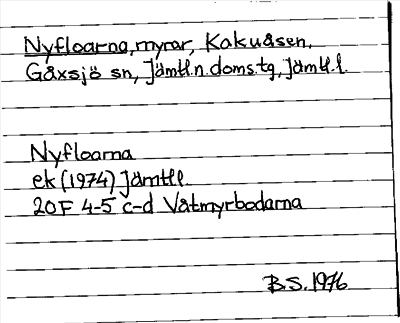 Nyfloarna, myrar, Kakuåsen,
Gåxsjö sn, Jämtl.n.doms.tg, Jämtl.l.
Nyfloarna
ek (1974) Jämtl
20F 4-5 c-d Våtmyrbodarna
B.S. 1976